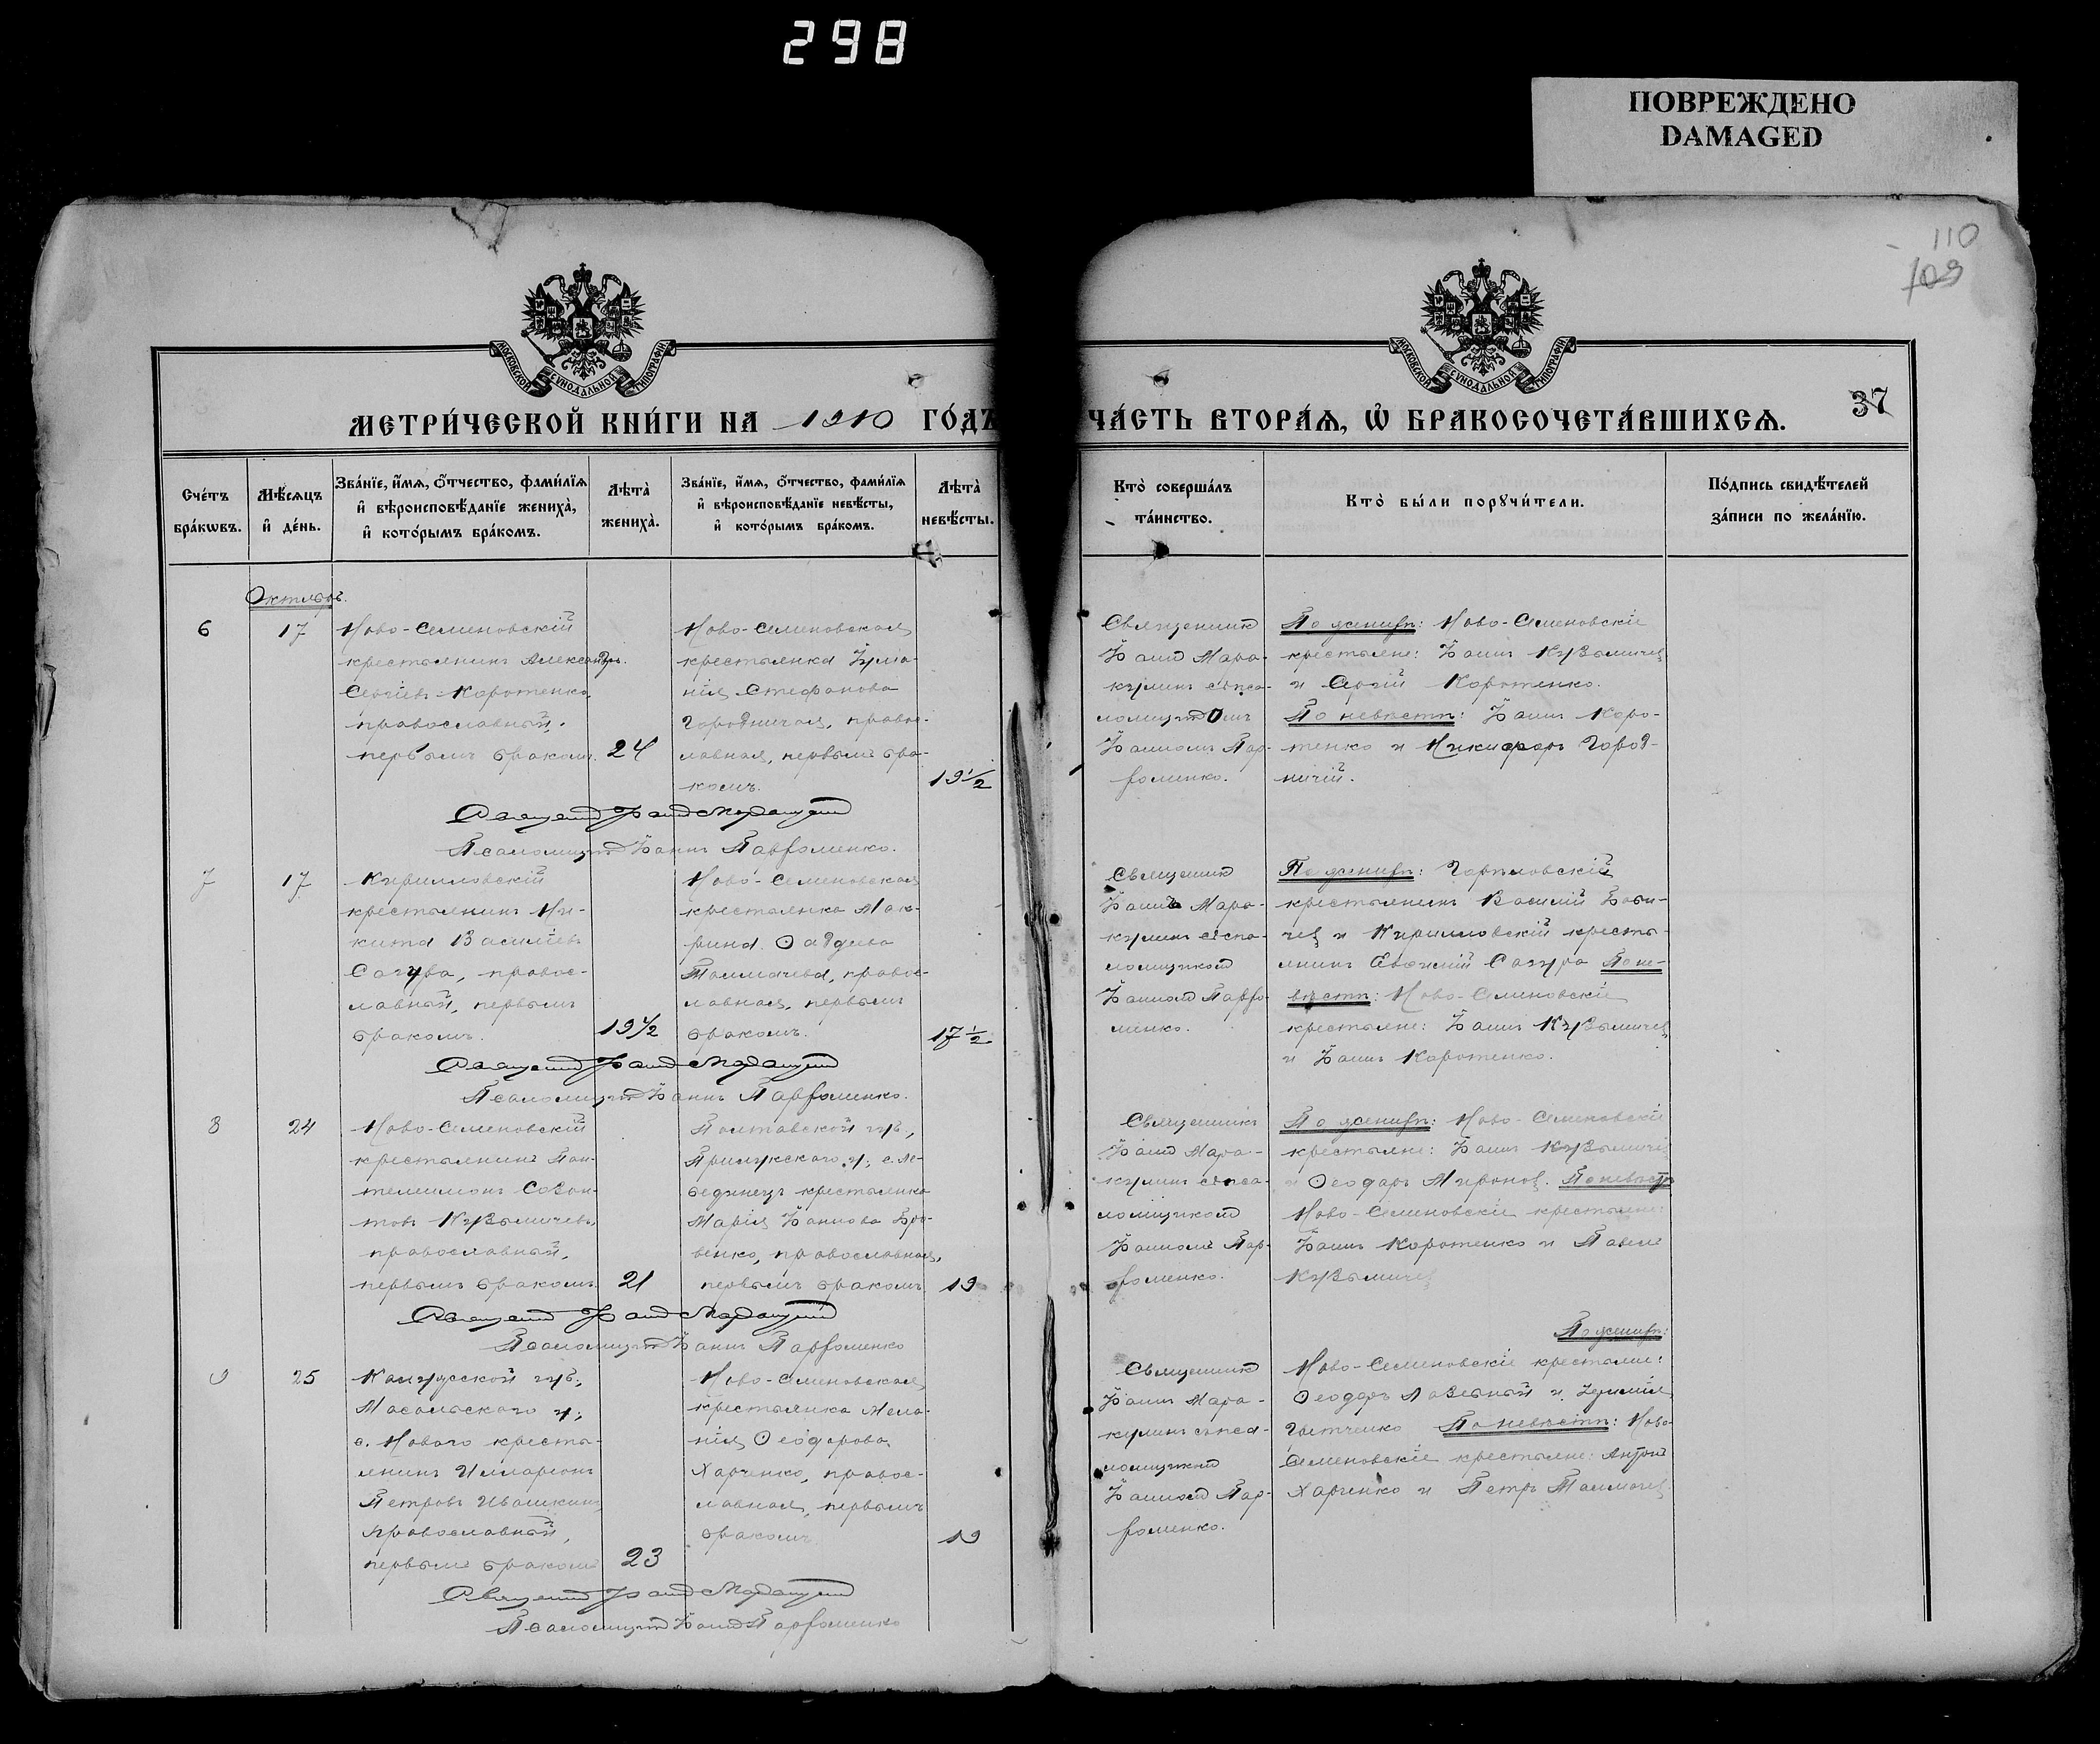 298
ПОВРЕЖДЕНО
DAMAGED
110
109
МОСКОВСКОЙ СѴНОДАЛЬНОЙ ТИПОГРАФІИ
МОСКОВСКОЙ СѴНОДАЛЬНОЙ ТИПОГРАФІИ
МЕТРИ́ЧЕСКОЙ КНИ́ГИ НА 1910 ГО́ДЪ
ЧА́СТЬ ВТОРА́Ѧ, Ѡ҆ БРАКОСОЧЕТА́ВШИХСѦ. 37
Сче́тъ бра́кѡвъ.
Мѣ́сяцъ и҆ де́нь.
Зва́нїе, и҆́мѧ, ѻ҆́тчество, фами́лїѧ
и҆ вѣроисповѣ́данїе жениха̀,
и҆ кото́рымъ бра́комъ.
Лѣта̀ жениха̀.
Зва́нїе, и҆́мѧ, ѻ҆́тчество, фами́лїѧ
и҆ вѣроисповѣ́данїе невѣ́сты,
и҆ кото́рымъ бра́комъ.
Лѣта̀ невѣ́сты.
Кто̀ соверша́лъ
та́инство.
Кто̀ бы́ли порꙋчи́тели.
По́дпись свидѣ́телей
за́писи по жела́нїю.
Октябрь.
6
17
Ново-Семеновскій
крестьянинъ Александръ
Сергіевъ Коротенко,
православный,
первымъ бракомъ.
24
Ново-Семеновская
крестьянка
нія Стефанова
Городничая, правос-
лавная, первымъ бра-
комъ.
19 1/2
Священникъ
Іоаннъ Мара-
кулинъ съ пса-
ломщикомъ
Іоанномъ Пар-
фоменко.
По женихѣ: Ново-Семеновскіе
крестьяне: Іоаннъ Кузьмичев
и Сергій Коротенко.
По невѣстѣ: Іоаннъ Коро-
тенко и Никифоръ Город-
ничій.
Священникъ Іоаннъ Маракулинъ
Псаломщикъ Іоаннъ Парфоменко.
7
17
Кирилловскій
крестьянинъ Ни-
кита Васильевъ
правос-
лавный, первымъ
бракомъ.
19 1/2
Ново-Семеновская
крестьянка Мак-
рина
Толмачева, правос-
лавная, первымъ
бракомъ.
17 1/2
Священникъ
Іоаннъ Мара-
кулинъ съ пса-
ломщикомъ
Іоанномъ Парфо-
менко.
По женихѣ:
крестьянинъ Василій
и Кирилловскій кресть-
янинъ По не-
вѣстѣ: Ново-Семеновскіе
крестьяне: Іоаннъ Кузьмичев
и Іоаннъ Коротенко.
Священникъ Іоаннъ Маракулинъ
Псаломщикъ Іоаннъ Парфоменко.
8
24
Ново-Семеновскій
крестьянинъ Пан-
телеимонъ Созон-
товъ Кузьмичевъ,
православный,
первымъ бракомъ
21
Полтавской губ.,
Прилукскаго у., с. Ле-
бединецъ крестьянка
Марія Іоаннова
православная,
первымъ бракомъ
19
Священникъ
Іоаннъ Мара-
кулинъ съ пса-
ломщикомъ
Іоанномъ Пар-
фоменко.
По женихѣ: Ново-Семеновскіе
крестьяне: Іоаннъ Кузьмичев
и Ѳеодоръ Миронов. По невѣстѣ
Ново-Семеновскіе крестьяне:
Іоаннъ Коротенко и Павелъ
Кузьмичев
Священникъ Іоаннъ Маракулинъ
Псаломщикъ Іоаннъ Парфоменко
9
25
Калужской губ.,
Масальскаго у.,
с. Нового кресть-
янинъ Илларіонъ
Петровъ Ивашкинъ,
православный,
первымъ бракомъ
23
Ново-Семеновская
крестьянка Мела-
нія Ѳеодорова
Харченко, правос-
лавная, первымъ
бракомъ
19
Священникъ
Іоаннъ Мара-
кулинъ съ пса-
ломщикомъ
Іоанномъ Пар-
фоменко.
По женихѣ:
Ново-Семеновскіе крестьяне:
Ѳеодоръ и
По невѣстѣ: Ново-
Семеновскіе крестьяне: Антоній
Харченко и Петръ Толмачев.
Священникъ Іоаннъ Маракулинъ
Псаломщикъ Іоаннъ Парфоменко